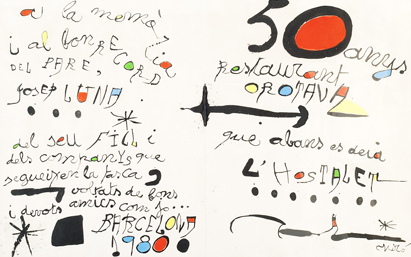 a la memò
i al bon RECORD
DEL PARE,
JOSEP LUNA
del seu FILL i
dels companys que
segueixen la tasca
voltats de bons
i devots amics com jo...
BARCELONA
1980
50 anys
restaurant
OROTAVA
que abans es deia
L'HOSTALET
Miró